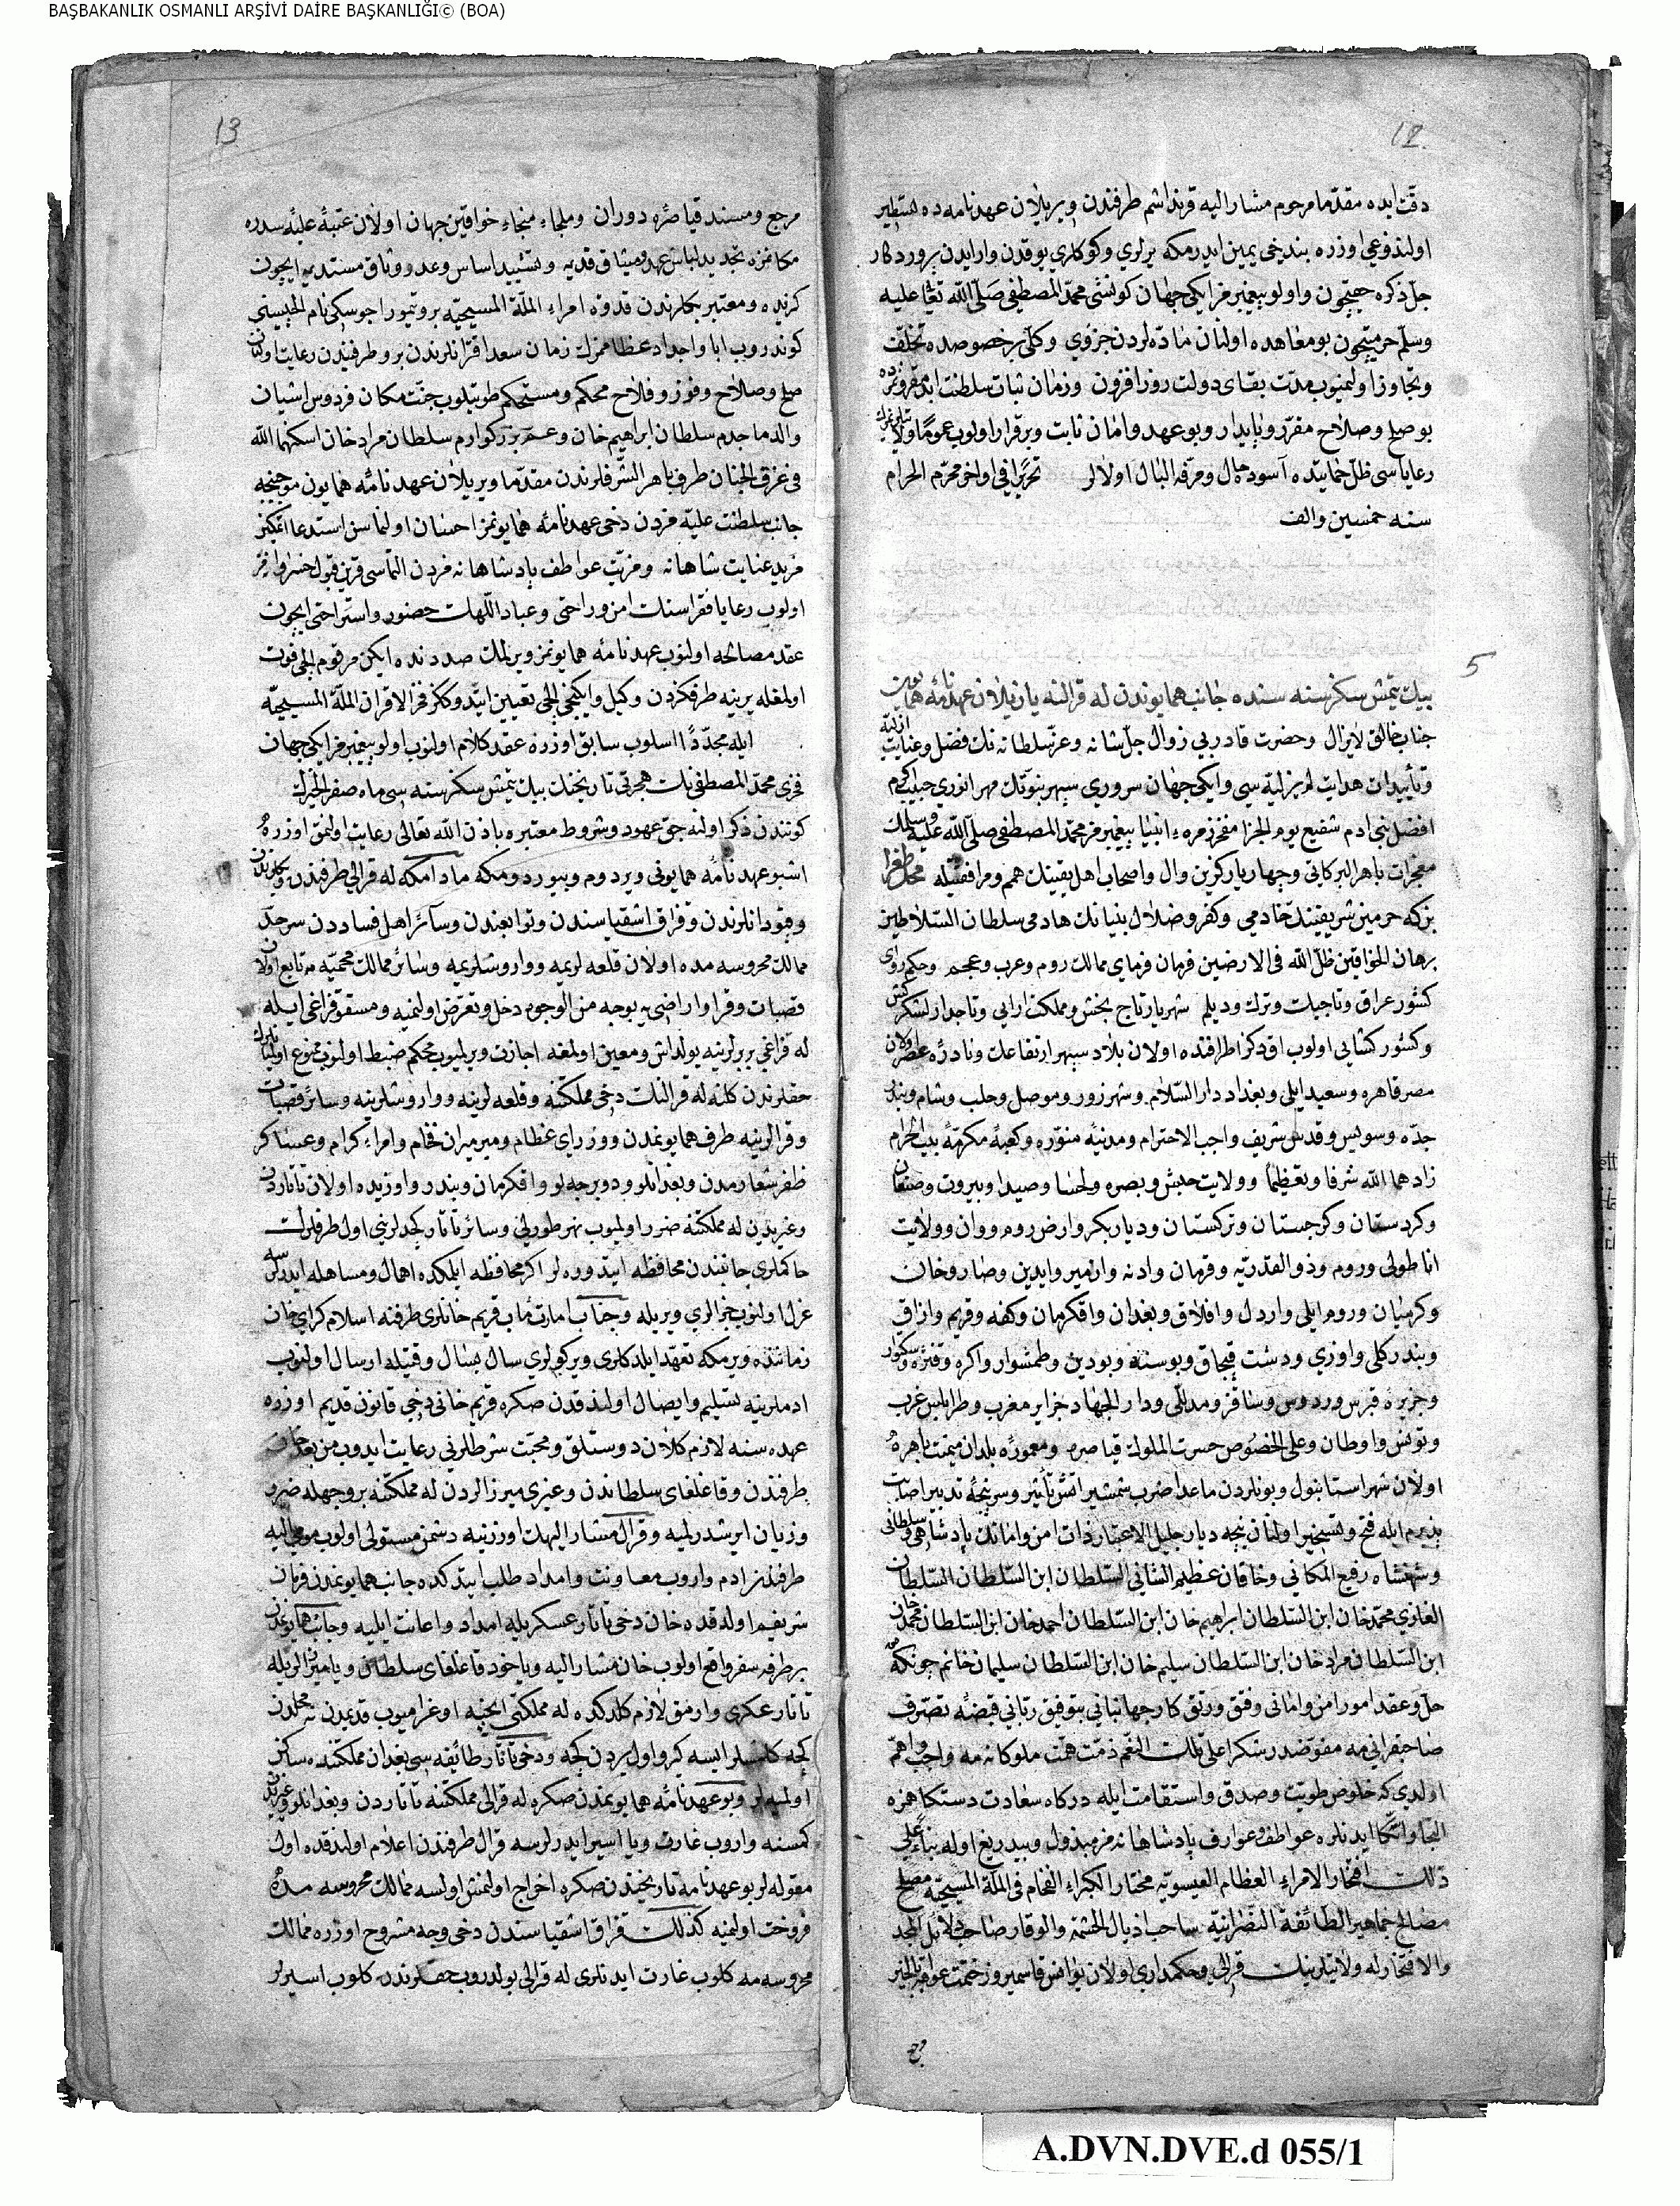 BAŞBAKANLIK OSMANLI ARŞİVİ DAİRE BAŞKANLIĞI© (BOA)
12
دقت ایده مقدما مرحوم مشار الیه قرنداشم طرفندن ویریلان عهدنامه ده تسطیر
اولندوغی اوزره بندخی یمین ایدرمکه یرلری و کوکلری یوقدن وارایدن پروردکار
جل ذکره حقیچون و اولو پیغمبرمز ایکی جهان کونشی محمد المصطفی صلی الله تعالی علیه
وسلم حرمتیچون بو معاهده اولنان ماده لردن جزوی و کلی بر خصوصده تخلف
و تجاوز اولنمیوب مدت بقای دولت روز افزون و زمان ثبات سلطنت
بو صلح و صلاح مقرر و پایدار و بو عهد و امان ثابت و برقرار اولوب عموما
رعایاسی ظل حمایتده آسوده حال و مرفه البال اولالر تحریرا فی اواخر محرم الحرام
سنه خمسین والف
5
بیك یتمش سکز سنه سنده جانب همایوندن له قرالنه یازیلان عهدنامۀ همایون
جناب خالق لایزال و حضرت قادر بی زوال جل شانه و عز سلطانه نك فضل و عنایت
و تأییدات هدایت لم یزلیه سی و ایکی جهان سروری سپهر نبوتك مهر انوری حبیب اکرم
افضل بنی ادم شفیع یوم الجزا مفخر زمرۀ انبیا پیغمبرمز محمد المصطفی صلی الله علیه وسلمك
معجزات باهر البرکاتی و چهار یار کزین وال و اصحاب اهل یقینك همم و مرافقتیله محل طغرا
بن که حرمین شریفینك خادمی و کفر و ضلال بنیانك هادمی سلطان السلاطین
برهان الخواقین ظل الله فی الارضین فرمان فرمای ممالك روم و عرب و عجم و حکمروای
کشور عراق و تاجیك و ترك و دیلم شهریار تاج بخش و مملکت ارایی و تاجدار لشکرکش
و کشور کشایی اولوب اطرافنده اولان بلاد سپهر ارتفاعك و نادرۀ عصر اولان
مصر قاهره و سعید ایلی و بغداد دار السلام و شهرزور و موصل و حلب و شام و بندر
جده و سویس و قدس شریف واجب الاحترام و مدینۀ منوره و کعبۀ مکرمۀ بیت الحرام
زادهما الله شرفا و تعظیما و ولایت حبش و بصره و لحسا و صیدا و بیروت و صنعان
و کردستان و کرجستان و ترکستان و دیاربکر و ارض روم و وان و ولایت
اناطولی و روم و ذوالقدریه و قرمان و ادنه و ازمیر و ایدین و صاروخان
و کرمیان و روم ایلی و اردل و افلاق و بغدان و اقکرمان و کفه و قریم و ازاق
و بندر کلی و اوزی و دشت قپچاق و بوسنه و بودین و طمشوار و اکره و قنیژه
و جزیرۀ قبرس و رودوس و ساقز و مدللی و دار الجهاد جزایر مغرب و طرابلس غرب
و تونس و اوطان و علی الخصوص حسرت الملوك قیاصره و معمورۀ بلدان میمنت باهره
اولان شهر استانبول و بونلردن ماعدا ضرب شمشیر اتش تأثیر و سرپنجۀ تدبیر اصابت
پذیرم ایله فتح و تسخیر اولنان نیجه دیار جلیل الاعتبار ذات امن و امانك پادشاهی و سلطانی
و شهنشاه رفیع المکانی و خاقان عظیم الشانی السلطان ابن السلطان السلطان
الغازی محمد خان ابن السلطان ابراهیم خان ابن السلطان احمد خان ابن السلطان محمد خان
ابن السلطان مراد خان ابن السلطان سلیم خان ابن السلطان سلیمان خانم چونکه
حل و عقد امور امن و امانی و فتق و رتق کار جهانبانی بتوفیق ربانی قبضۀ تصرف
صاحبقرانیمه مفوضدر شکرا علی تلك النعم ذمت همت ملوکانه مه واجب و اهم
اولدی که خلوص طویت و صدق و استقامت ایله درکاه سعادت دستکاهمزه
التجا و اتکا ایدنلره عواطف و عوارف پادشاهانه مز مبذول و بیدریغ اوله بناء علی
ذلك افتخار الامراء العظام العیسویه مختار الکبراء الفخام فی الملة المسیحیه مصلح
مصالح جماهیر الطائفة النصرانیه ساحب اذیال الحشمة والوقار صاحب دلائل المجد
والافتخار له ولایتلرینك قرالی و حکمداری اولان یوانس قاسمیروز ختمت عواقبه بالخیر
13
مرجع و مسند قیاصرۀ دوران و ملجاء منجاء خواقین جهان اولان عتبۀ علیۀ سدره
مکانمزه تجدید لباس عهد و میثاق قدیم و تشیید اساس وعد و وثاق مستدیم ایچون
کزیده و معتبر بکلرندن قدوة امراء الملة المسیحیه نام ایلچیسنی
کوندروب ابا و اجداد عظاممزك زمان سعد اقترانلرندن برو طرفیندن رعایت اولنان
صلح و صلاح و فوز و فلاح محکم و مستحکم طوتیلوب جنت مکان فردوس اشیان
والد ماجدم سلطان ابراهیم خان و عم بزرکوارم سلطان مراد خان اسکنهما الله
فی غرف الجنان طرف باهر الشرفلرندن مقدما ویریلان عهدنامۀ همایون موجبنجه
جانب سلطنت علیه مزدن دخی عهدنامۀ همایونمز احسان اولنماسن استدعا اتمکین
مزید عنایت شاهانه و مزیت عواطف پادشاهانه مزدن التماسی قرین قبول خسروانه مز
اولوب رعایا فقراسنك امن و راحتی و عباد اللهك حضور و استراحتی ایچون
عقد مصالحه اولنوب عهدنامۀ همایونمز ویرلمك صددنده ایکن مرقوم ایلچی فوت
اولمغله یرینه طرفکزدن وکیل و ایکنجی ایلچی تعیین ایتدوککز فخر الاقران الملة المسیحیه
ایله مجددا اسلوب سابق اوزره عقد کلام اولنوب اولو پیغمبرمز ایکی جهان
فخری محمد المصطفی نك هجرتی تاریخنك بیك یتمش سکز سنه سی ماه صفر الخیرك
کونندن ذکر اولنه جق عهود و شروط معتبره باذن الله تعالی رعایت اولنمق اوزره
اشبو عهدنامۀ همایونی ویردم و بیوردومکه مادامکه له قرالی طرفندن و بکلرندن
و قپودانلرندن و قزاق اشقیاسندن و توابعندن و سائر اهل فساددن سرحد
ممالك محروسه مده اولان قلعه لریمه و واروشلریمه و سائر ممالك محمیه مه تابع اولان
قصبات و قرا و اراضی یه بوجه من الوجوه دخل و تعرض اولنمیه و مسقو قزاغی ایله
له قزاغی بربرلرینه یولداش و معین اولمغه اجازت ویرلمیوب محکم ضبط اولنوب ممنوع اولنالر
حقلرندن کلنه له قرالنك دخی مملکتنه و قلعه لرینه و واروشلرینه و سائر قصبات
و قرالرینه طرف همایونمدن و وزرای عظام و میرمیران فخام و امراء کرام و عساکر
ظفر شعارمدن و بغدانلو و دوبریجه لو و اقکرمان و بندر و اوزیده اولان تاتاردن
و غیریدن له مملکتنه ضرر اولمیوب نهر طورلی و سائر تاتار کچدلرینی اول طرفلرك
حاکملری جانبندن محافظه ایتدوره لر اکر محافظه ایلمکده اهمال و مساهله ایدرلرسه
عزل اولنوب جزالری ویریله و جناب امارت مآب قریم خانلری طرفنه اسلام کرای خان
زماننده ویرمکه تعهد ایلدکلری ویرکولری سال بسال وقتیله ارسال اولنوب
ادملرینه تسلیم و ایصال اولندقدن صکره قریم خانی دخی قانون قدیم اوزره
عهده سنه لازم کلان دوستلق و محبت شرطلرنی رعایت ایدوب من بعد خان
طرفندن و قاغلغای سلطاندن و غیری میرزالردن له مملکتنه بر وجهله ضرر
و زیان ایرشدرلمیه و قرال مشار الیهك اوزرینه دشمن مستولی اولوب مومی الیه
طرفندن ادم واروب معاونت و امداد طلب ایتدکده جانب همایونمدن فرمان
شریفم اولدقده خان دخی تاتار عسکریله امداد و اعانت ایلیه و جانب همایونمدن
بر طرفه سفر واقع اولوب خان مشار الیه و یاخود قاغلغای سلطان و یا میرزالر ایله
تاتار عسکری وارمق لازم کلدکده له مملکتی ایچنه اوغرامیوب قدیمدن نه محلدن
کچه کلمشلر ایسه کیرو اول یردن کچه و دخی تاتار طائفه سی بغدان مملکتنده ساکن
اولمیه لر و بو عهدنامۀ همایونمدن صکره له قرالی مملکتنه تاتاردن و بغدانلو و غیریدن
کمسنه واروب غارت و یا اسیر ایدرلرسه قرال طرفندن اعلام اولندقده اول
مقوله لر بو عهدنامه تاریخندن صکره اخراج اولنمش اولسه ممالك محروسه مده
فروخت اولنمیه کذلك قزاق اشقیاسندن دخی وجه مشروح اوزره ممالك
محروسه مه کلوب غارت ایدنلری له قرالی بولدروب حقلرندن کلوب اسیرلر
A.DVN.DVE.d 055/1